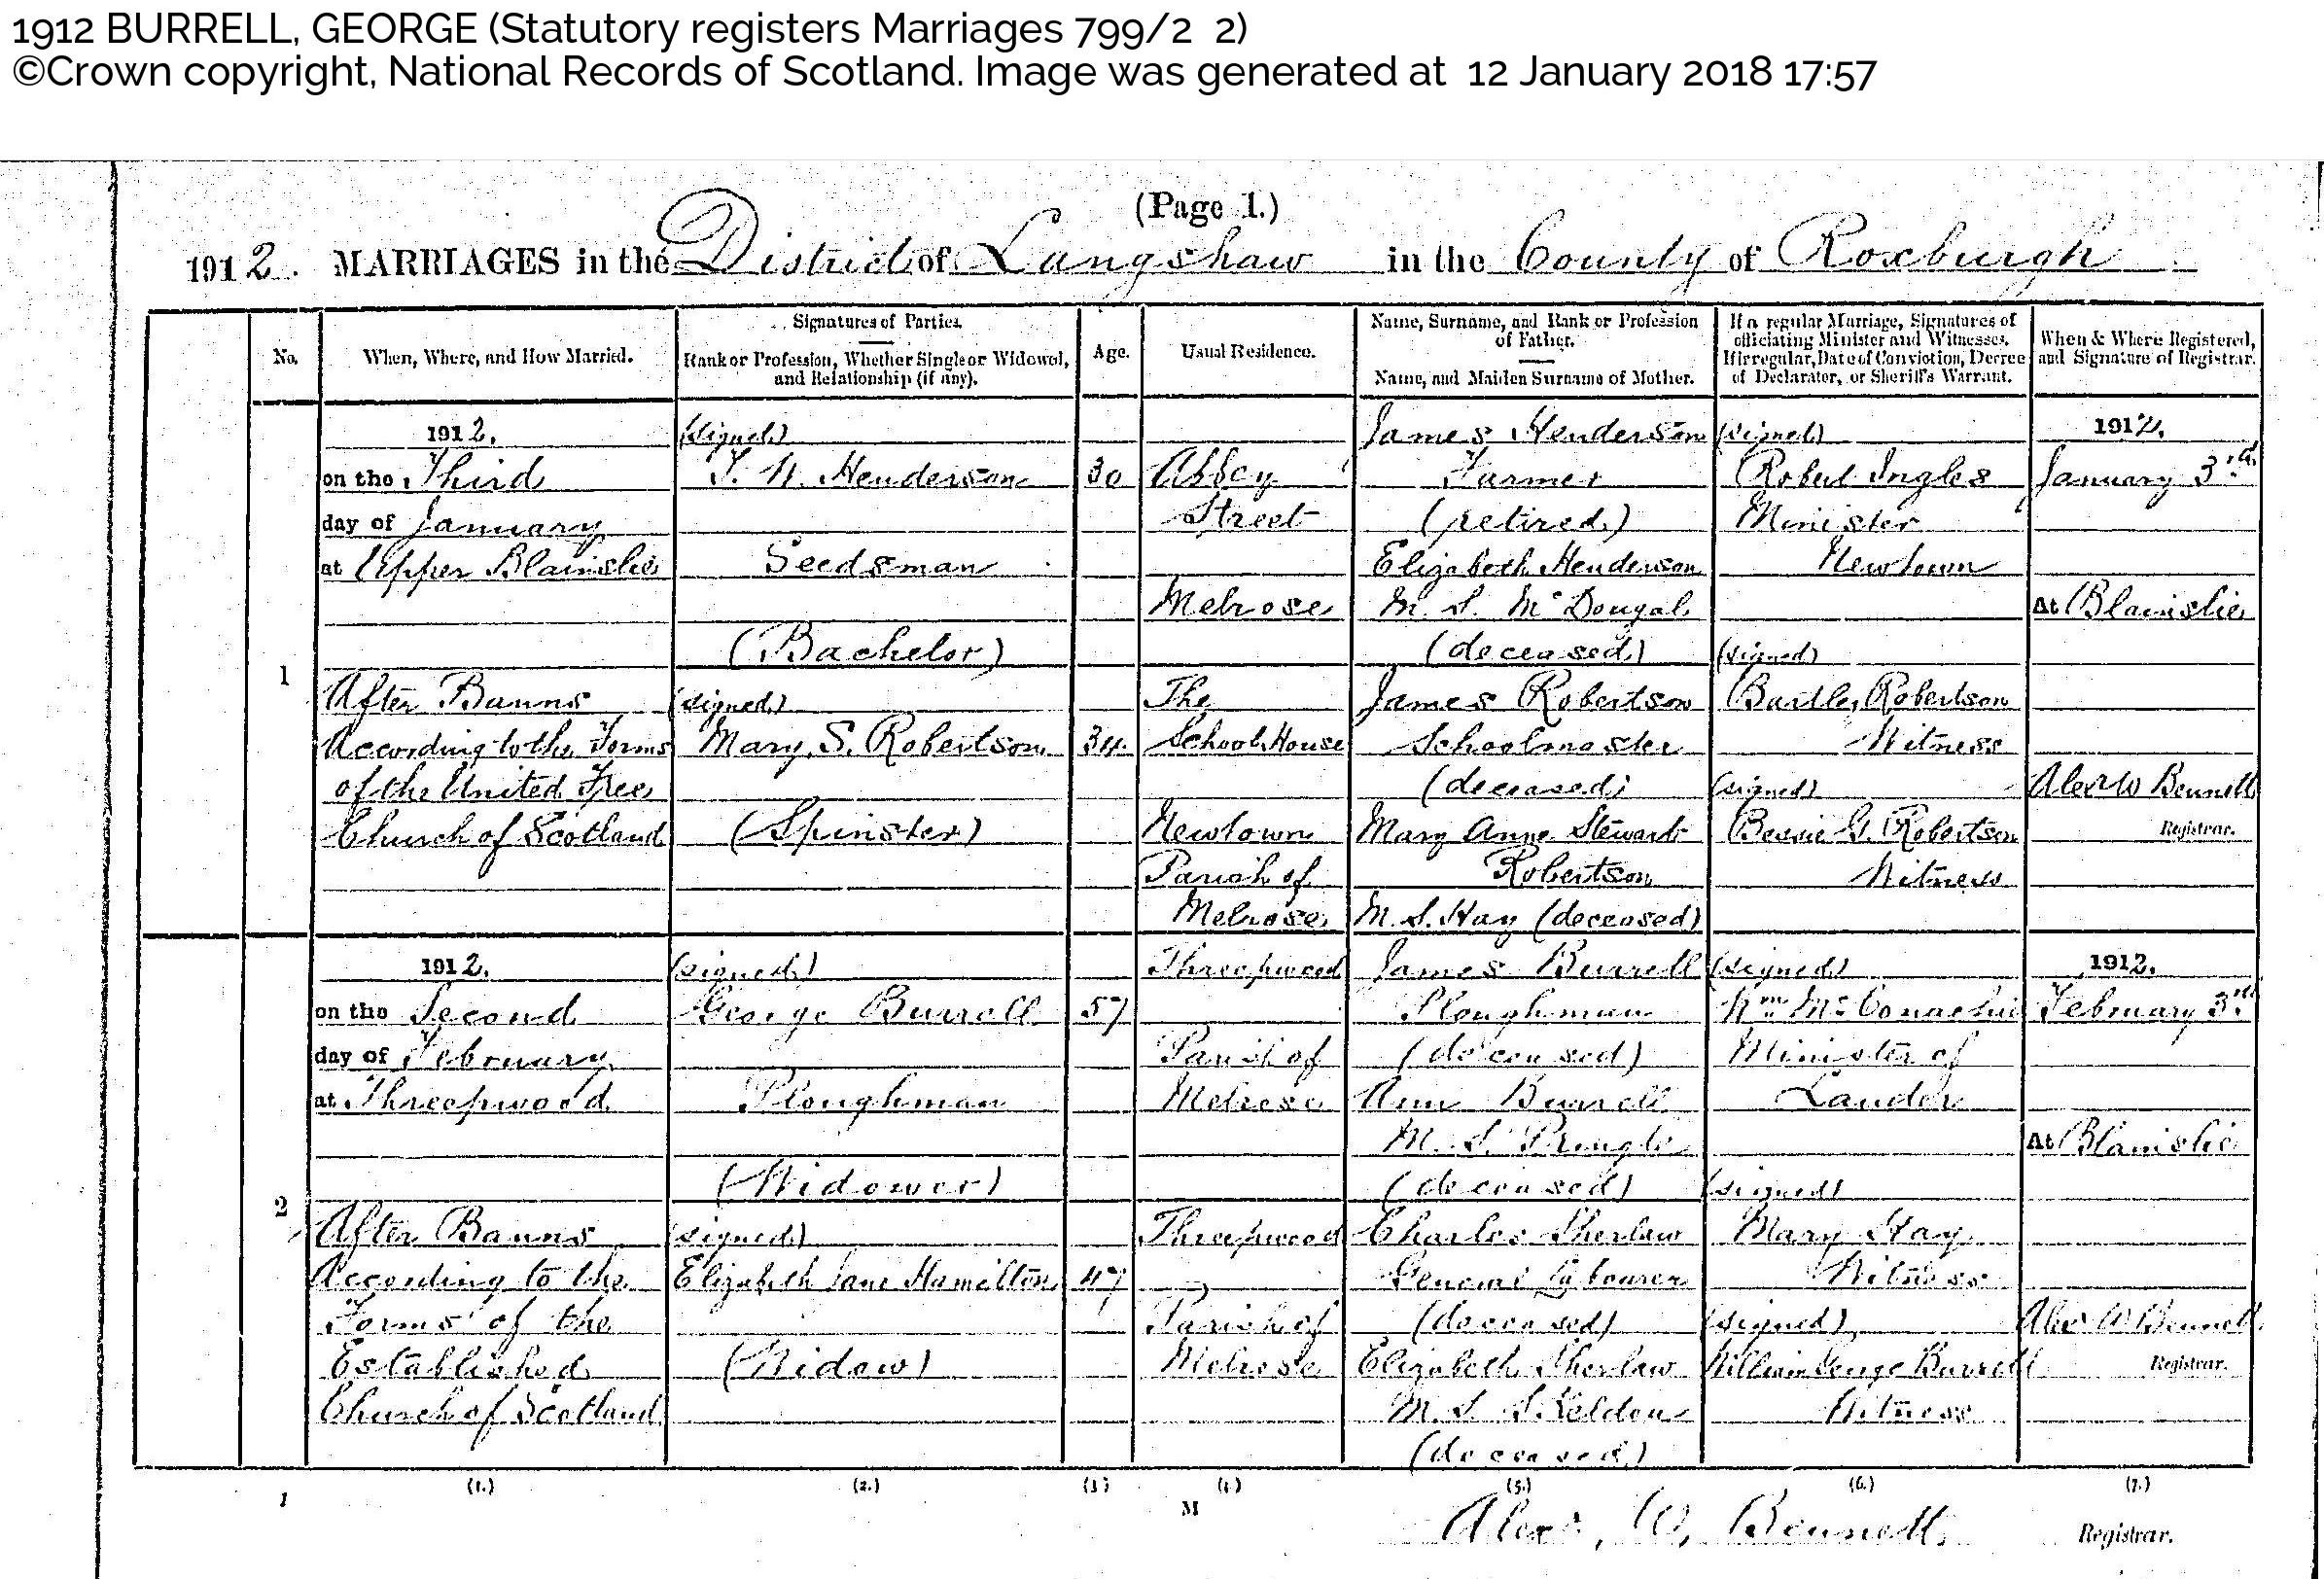 1912 BURRELL, GEORGE (Statutory registers Marriages 799/2 2)
©Crown copyright, National Records of Scotland. Image was generated at 12 January 2018 17:57
(Page 1.)
1912. MARRIAGES in the District of Langshaw in the County of Roxburgh
No.
When, Where, and How Married.
Signatures of Parties.
Rank or Profession, Whether Single or Widowed,
and Relationship (if any).
Age.
Usual Residence.
Name, Surname, and Rank or Profession
of Father.
Name, and Maiden Surname of Mother.
If a regular Marriage, Signatures of
officiating Minister and Witnesses.
If irregular, Date of Conviction, Decree
of Declarator, or Sheriff's Warrant.
When & Where Registered,
and Signature of Registrar.
1
1912.
on the Third
day of January
at Upper Blainslie
After Banns
According to the Forms
of the United Free
Church of Scotland
(signed)
Henderson
Seedsman
(Bachelor)
(signed)
Mary S. Robertson
(Spinster)
30
34
Abbey
Street
Melrose
The
School House
Newtown
Parish of
Melrose
James Henderson
Farmer
(retired)
Elizabeth Henderson
M. S. McDougal
(deceased)
James Robertson
Schoolmaster
(deceased)
Mary Anne Stewart
Robertson
M. S. Hay (deceased)
(signed)
Robert Ingles
Minister
Newtown
(signed)
Robertson
Witness
(signed)
Bessie G. Robertson
Witness
1912.
January 3rd
At Blainslie
Alex W Bennett
Registrar.
2
1912.
on the Second
day of February
at Threepwood
After Banns
According to the
Forms of the
Established
Church of Scotland
(signed)
George Burrell
Ploughman
(Widower)
(signed)
Elizabeth Jane Hamilton
(Widow)
57
47
Threepwood
Parish of
Melrose
Threepwood
Parish of
Melrose
James Burrell
Ploughman
(deceased)
Ann Burrell
M. S. Pringle
(deceased)
Charles Sherlaw
General Labourer
(deceased)
Elizabeth Sherlaw
M. S. Skeldon
(deceased)
(signed)
Wm McConachie
Minister of
Lauder
(signed)
Mary Hay
Witness
(signed)
William George Burrell
Witness
1912.
February 3rd
At Blainslie
Alex W Bennett
Registrar.
(1.) (2.) (3) (4.) (5.) (6.) (7.)
1 M
Alexr. W. Bennett
Registrar.